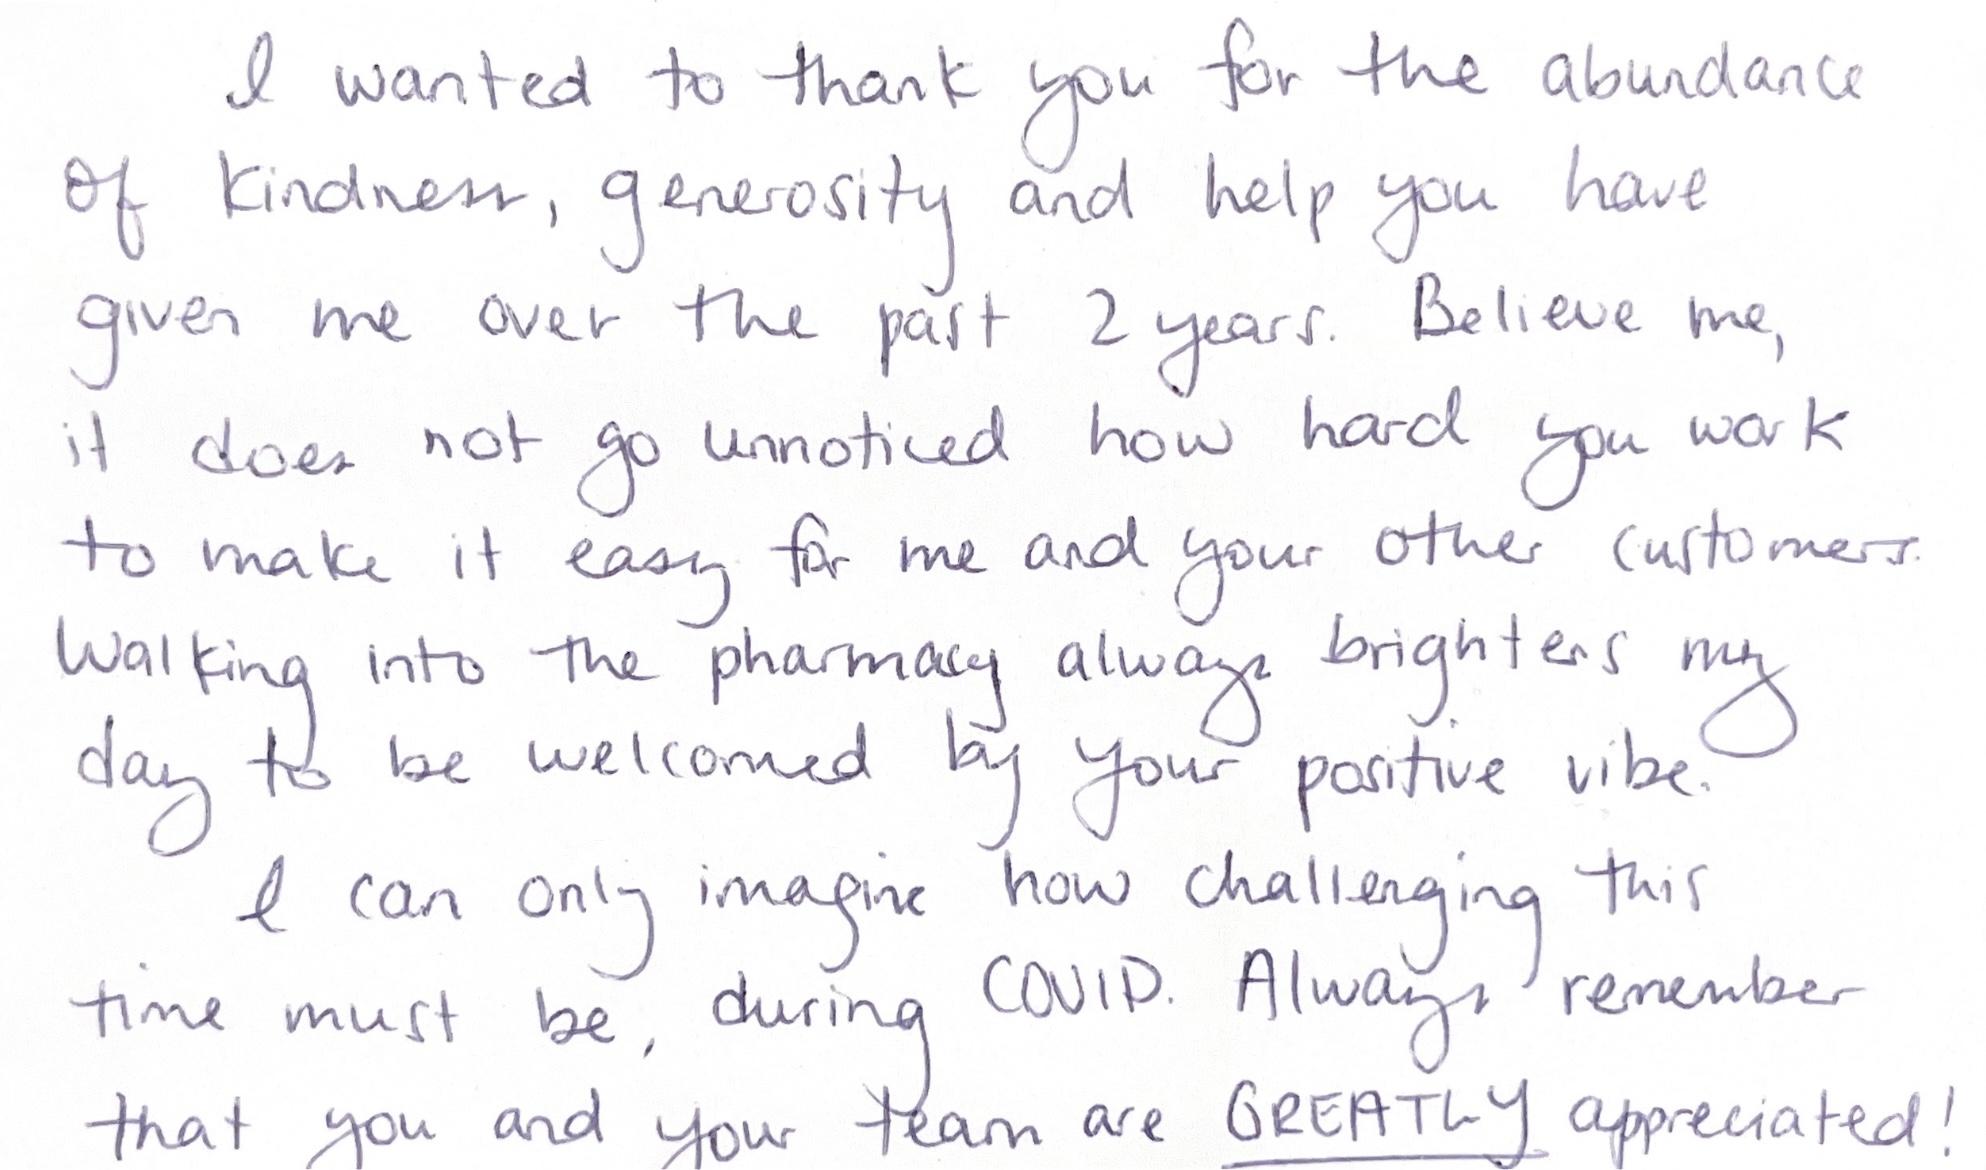 I wanted to thank you for the abundance
of kindness, generosity and help you have
given me over the past 2 years. Believe me,
it does not go unnoticed how hard you work
to make it easy for me and your other customers.
Walking into the pharmacy always brightens my
day to be welcomed by your positive vibe.
I can only imagine how challenging this
time must be, during COVID. Always remember
that you and your team are GREATLY appreciated!